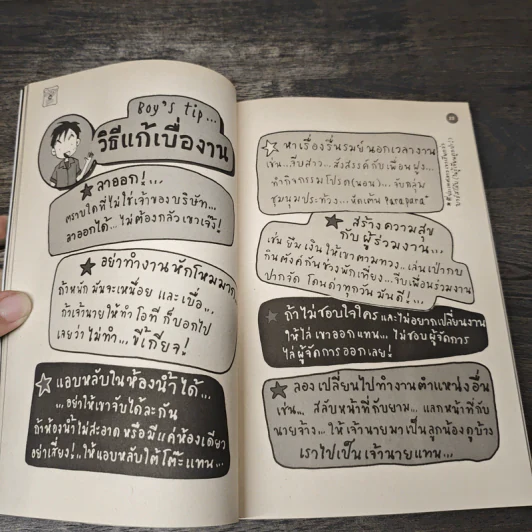 Boy's tip...
วิธีแก้เบื่องาน
ลาออก!...
ตราบใดที่ไม่ใช่เจ้าของบริษัท...
ลาออกได้... ไม่ต้องกลัวเขาเจ๊ง!
อย่าทำงานหักโหมมาก
ถ้าหนัก มันจะเหนื่อย และเบื่อ...
ถ้าเจ้านายให้ทำ โอที ก็บอกไป
เลยว่า ไม่ทำ... ขี้เกียจ!
แอบหลับในห้องน้ำได้...
...อย่าให้เขาจับได้ละกัน
ถ้าห้องน้ำไม่สะอาด หรือมีแค่ห้องเดียว
อย่าเสี่ยง!..ให้แอบหลับใต้โต๊ะแทน...
หาเรื่องรื่นรมย์นอกเวลางาน
เช่น...จีบสาว... สังสรรค์กับเพื่อนฝูง...
ทำกิจกรรมโปรด(นอน)... จับกลุ่ม
ชุมนุมประท้วง...หัดเต้น Parapara*
สร้างความสุข
กับผู้ร่วมงาน...
เช่น ยืมเงินให้เขาตามทวง..เล่นเป่ากบ
กินตังค์กันช่วงพักเที่ยง...จีบเพื่อนร่วมงาน
ปากจัด โดนด่าทุกวัน มันดี!...
ถ้าไม่ชอบใจใคร และไม่อยากเปลี่ยนงาน
ให้ไล่เขาออกแทน... ไม่ชอบผู้จัดการ
ไล่ผู้จัดการออกเลย!
ลองเปลี่ยนไปทำงานตำแหน่งอื่น
เช่น... สลับหน้าที่กับยาม... แลกหน้าที่กับ
นายจ้าง... ให้เจ้านายมาเป็นลูกน้องดูบ้าง
เราไปเป็นเจ้านายแทน...